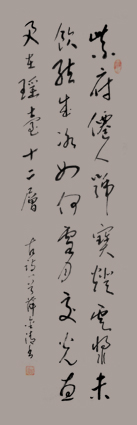 紫府僊人號寶燈雲漿未
飲結成冰如何雪月交光夜
更在瑤臺十二層
古詩一首